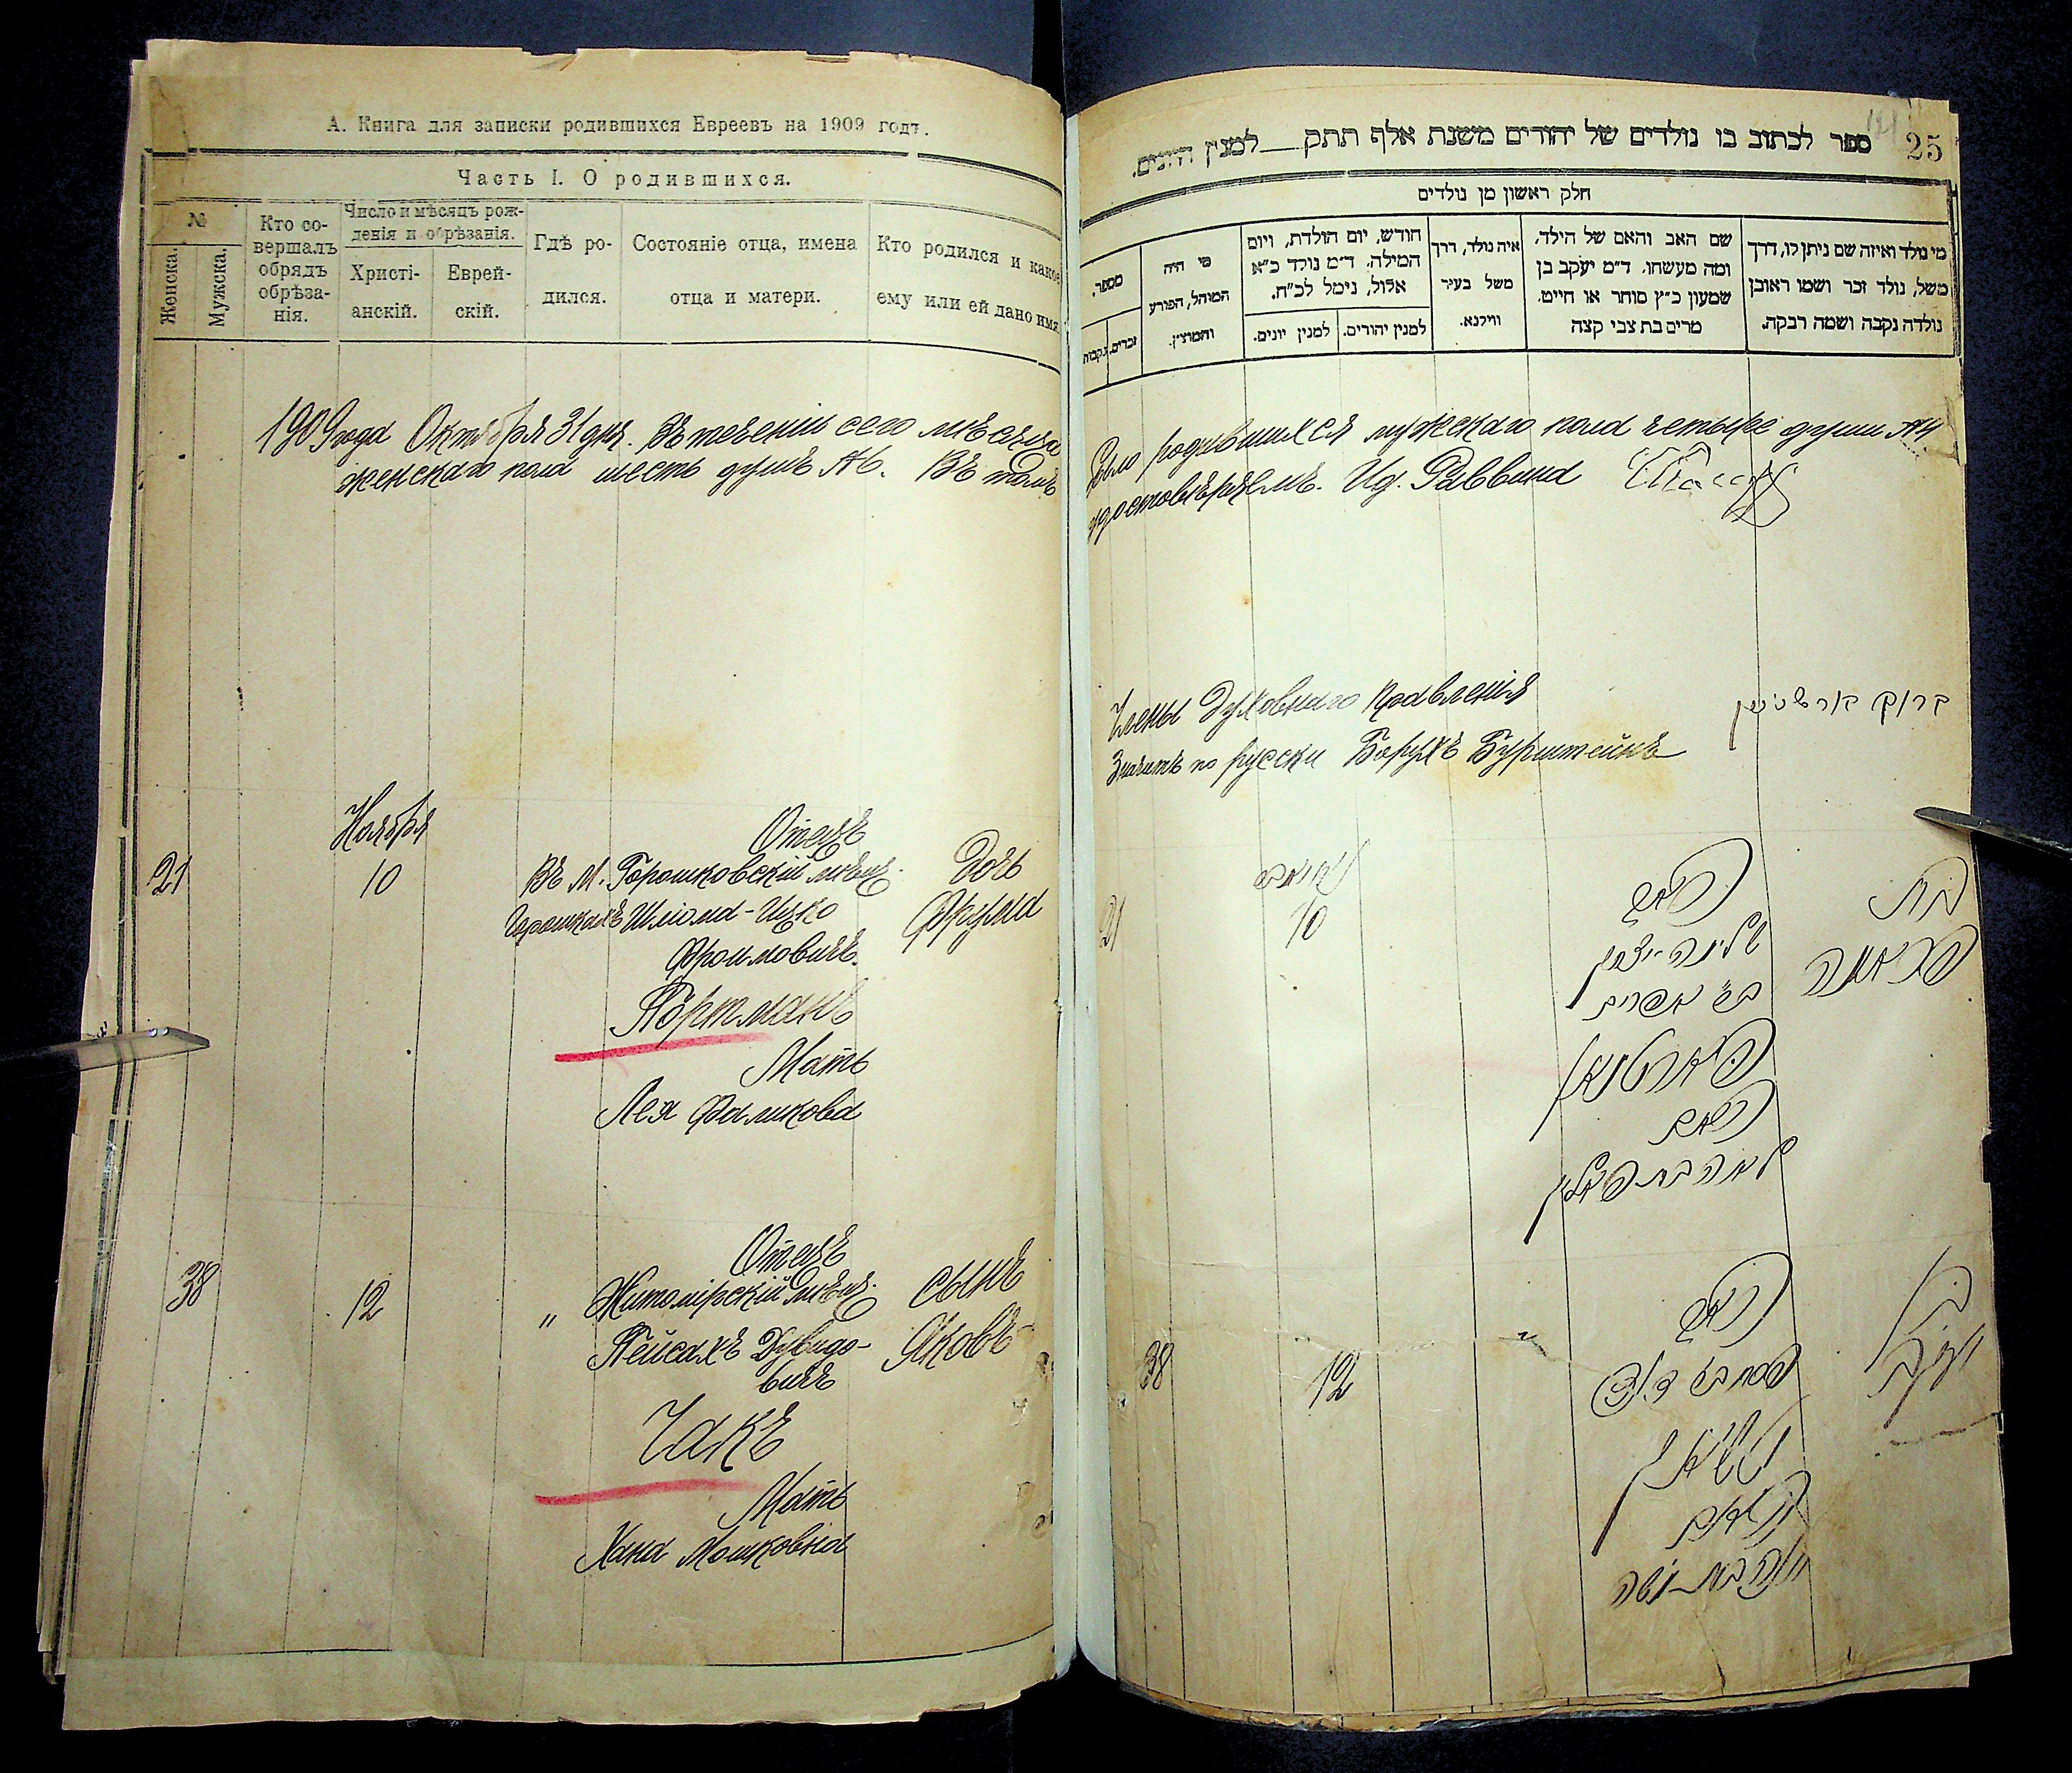 А. Книга для записки родившихся Евреевъ на 1909 годъ.
Часть I. О родившихся.
№
Женска.
Мужска.
Кто со-
вершалъ
обрядъ
обрѣза-
нія.
Число и мѣсяцъ рож-
денія и обрѣзанія.
Христі-
анскій.
Еврей-
скій.
Гдѣ ро-
дился.
Состояніе отца, имена
отца и матери.
Кто родился и какое
ему или ей дано имя
1909 года Октября 31 дня. Въ теченіи сего мѣсяца
женскаго пола шесть душъ №6. Въ томъ
Ноября
21
10
Отецъ
Въ м. Горошковскій мѣщ.
Горошкахъ Шлiома-Ицко
Фроимовичъ
Портманъ
Мать
Лея Фаликова
Дочь
Фрума
38
12
Отецъ
" Житомірскій мѣщ.
Пейсахъ Дувидо-
вичъ
Чакъ
Мать
Хана Мошковна
сынъ
Яковъ
25
ספר לכתוב בו נולדים של יהודים משנת אלף תתק__למנין היונים.
חלק ראשון מן נולדים
מי נולד ואיזה שם ניתן לו, דרך
משל, נולד זכר ושמו ראובן
נולדה נקבה ושמה רבקה.
שם האב והאם של הילד,
ומה מעשהו. ד״מ יעקב בן
שמעון כ״ץ סוחר או חייט.
מרים בת צבי קצה
איה נולד, דרך
משל בעיר
ווילנא.
חודש, יום הולדת, ויום
המילה. ד״מ נולד כ״א
אלול, נימל לכ״ח.
למנין יהודים.
למנין יונים.
מי היה
המוהל, הפורע
והמוצץ.
מספר.
זכרים.
נקבות
было родившихся мужскаго пола четыре души №4
удостовѣряемъ. Ид. Раввина
Члены Духовнаго Правленія
ברוך בורשטיין
Значитъ по русски Борухъ Бурштейнъ
21
10
האב
שלומה-יצחק
בר אפרים
פארטמאן
האם
לאה בת פאליק
בת
פרומה
38
12
האב
פסח בר דוד
טשאק
האם
חנה בת משה
בן
יעקב